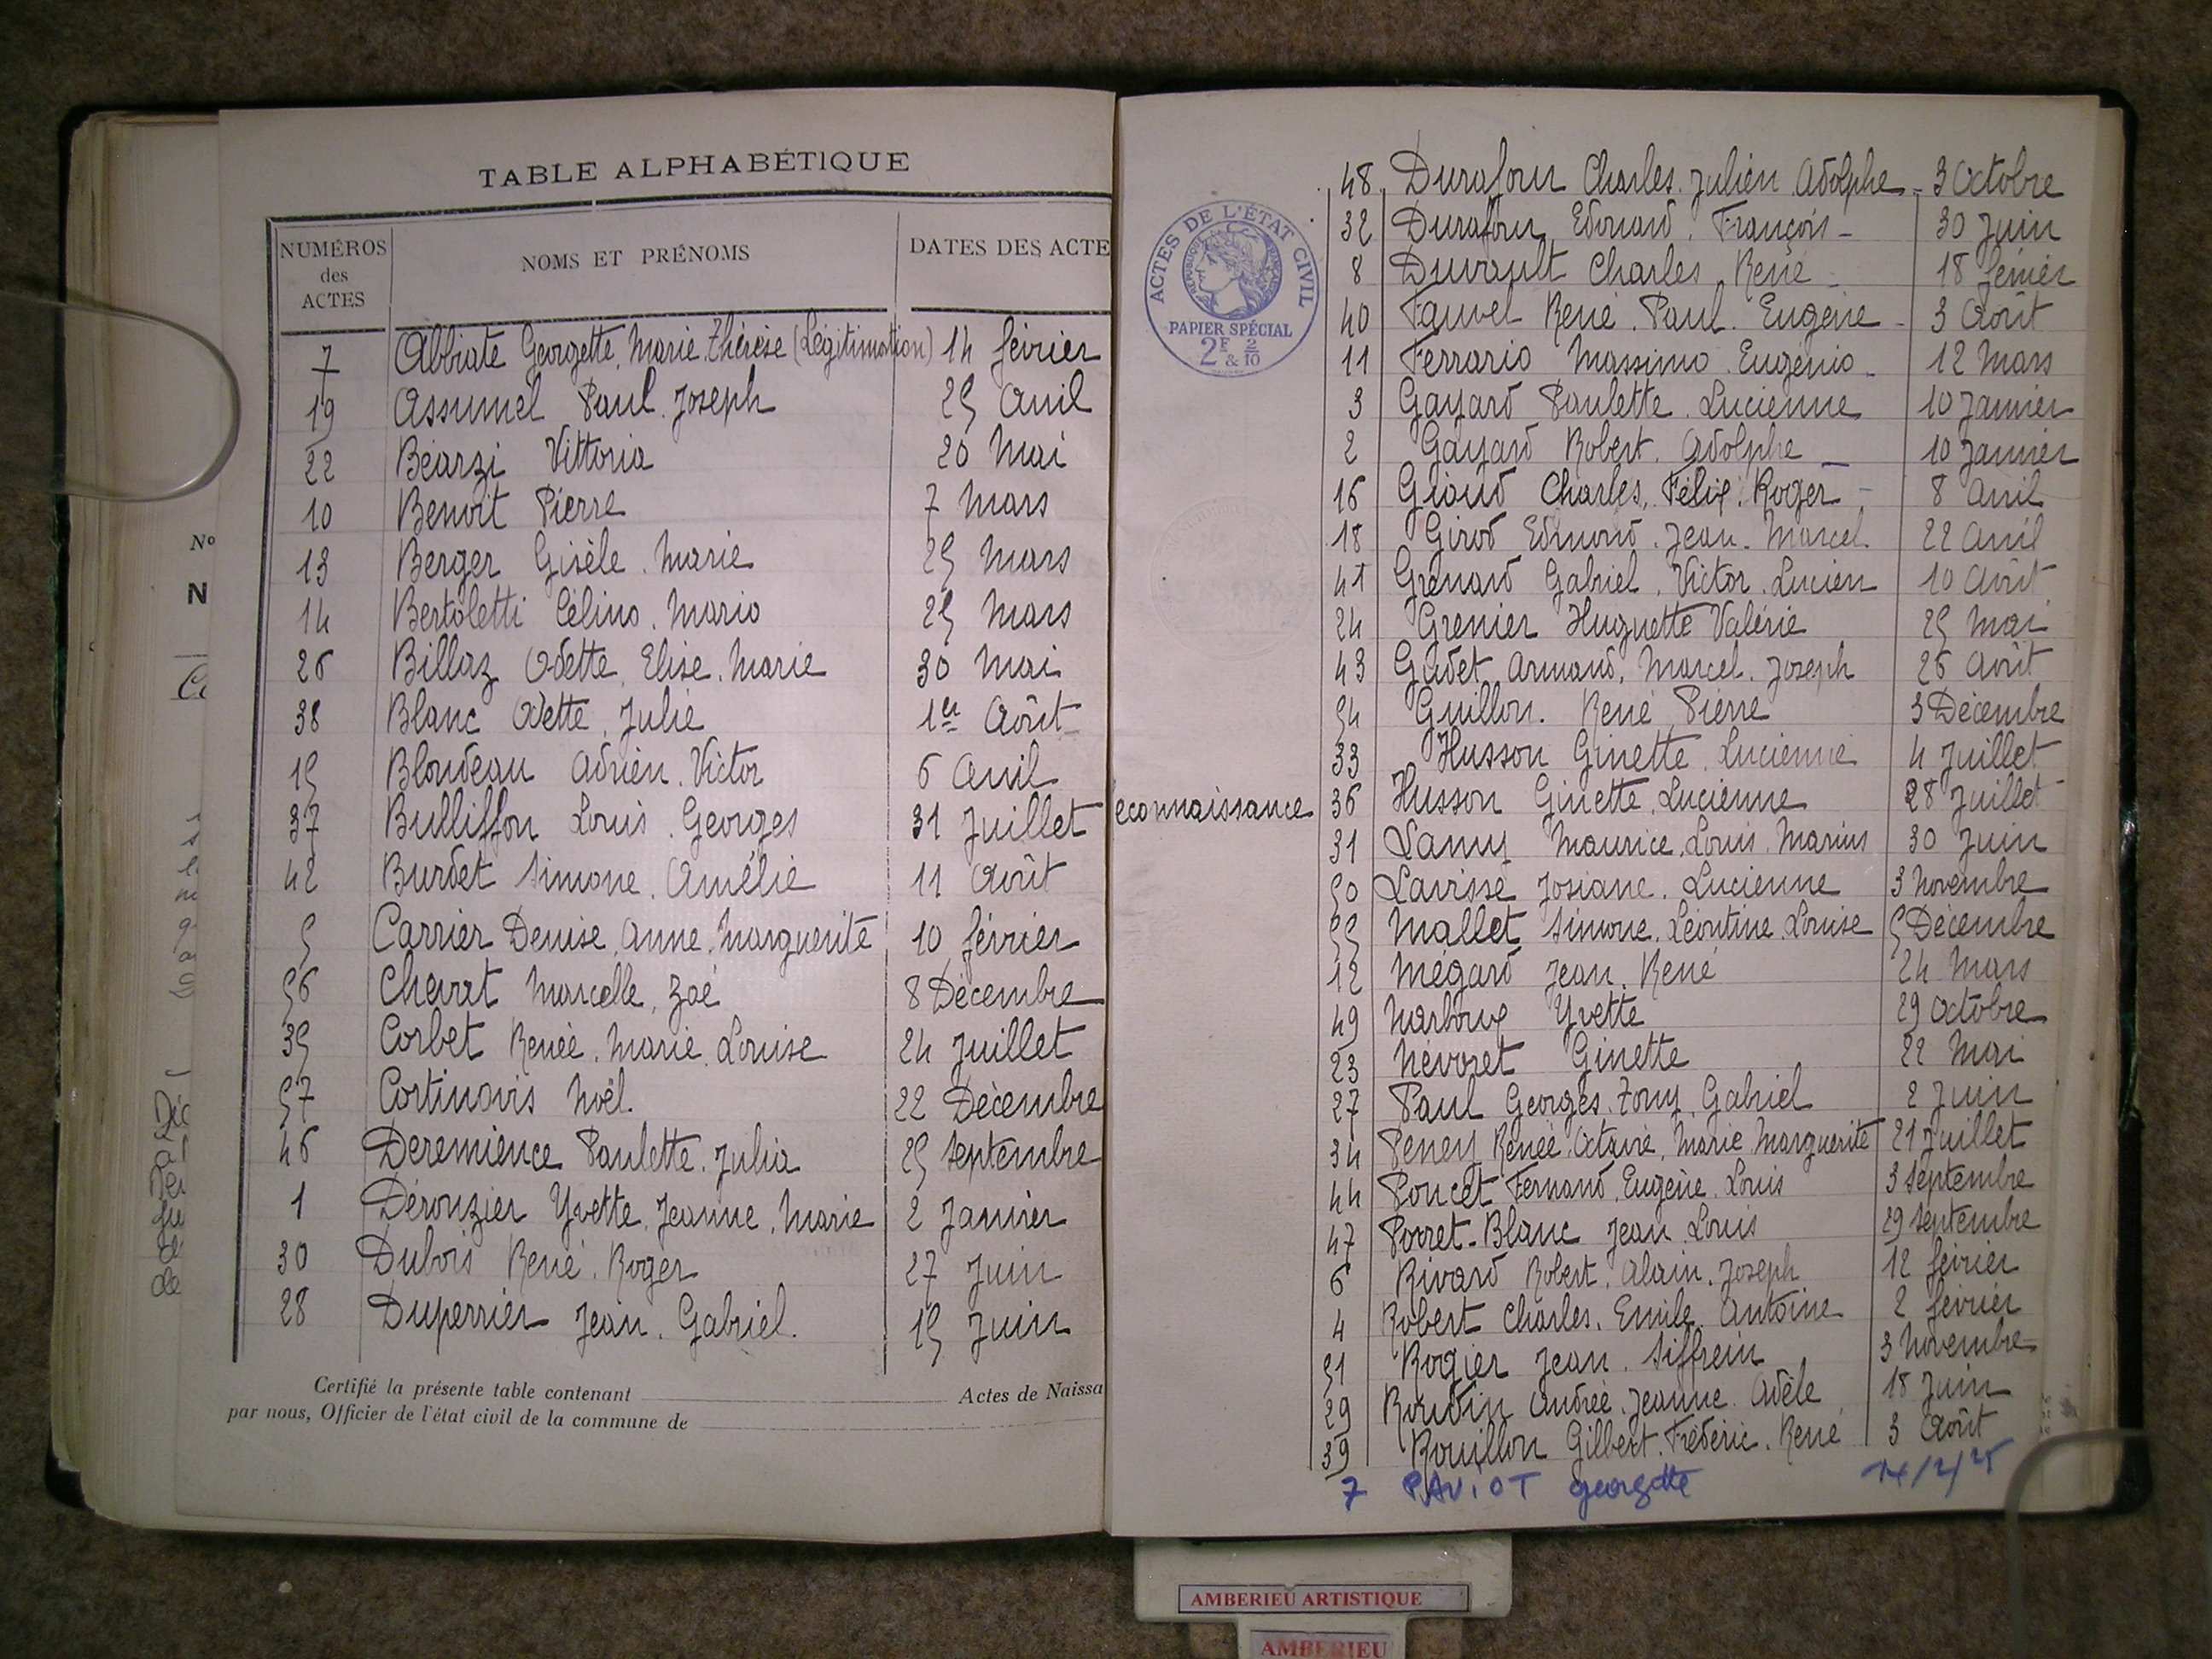 TABLE ALPHABÉTIQUE
NUMÉROS des ACTES NOMS ET PRÉNOMS DATES DES ACTE
7 Abbiate Georgette, Marie Thérèse (Légitimation) 14 février
19 Assumel Paul Joseph 25 Avril
22 Béarzi Vittoria 20 Mai
10 Benoit Pierre 7 Mars
13 Berger Gisèle. Marie 25 Mars
14 Bertoletti Célino. Mario 25 Mars
26 Billaz Odette, Elise. Marie 30 Mai
38 Blanc Odette. Julie 1er Août
15 Blondeau Adrien. Victor 6 Avril
37 Bulliffon Louis. Georges 31 Juillet
42 Burdet Simone. Amélie 11 Août
5 Carrier Denise, Anne. Marguerite 10 février
56 Charvet Marcelle, Zoé 8 Décembre
35 Corbet Renée. Marie Louise 24 Juillet
57 Cortinovis Noël. 22 Décembre
46 Deremience Paulette. Julia 25 Septembre
1 Déronzier Yvette, Jeanne, Marie 2 Janvier
30 Dubois René. Roger 27 Juin
28 Duperrier Jean. Gabriel. 15 Juin
Certifié la présente table contenant Actes de Naissa
par nous, Officier de l'état civil de la commune de
N°
N
ACTES DE L'ÉTAT CIVIL
RÉPUBLIQUE FRANÇAISE
PAPIER SPÉCIAL
2F & 2/10
48 Durafour Charles. Julien Adolphe 3 Octobre
32 Durafour Edouard. François 30 Juin
8 Duvault Charles René 18 février
40 Fauvel René. Paul. Eugène 3 Août
11 Ferrario Massimo Eugénio 12 Mars
3 Gayard Paulette. Lucienne 10 Janvier
2 Gayard Robert. Adolphe 10 Janvier
16 Charles, Félix. Roger 8 Avril
18 Girod Edmond. Jean. Marcel. 22 Avril
41 Grenard Gabriel. Victor. Lucien 10 Août
24 Grenier Huguette Valérie 25 Mai
43 Gudet Armand, Marcel. Joseph 26 Août
54 Guillon. René Pierre 3 Décembre
33 Husson Ginette. Lucienne 4 Juillet
econnaissance 36 Husson Ginette. Lucienne 28 Juillet
31 Lamy Maurice, Louis. Marius 30 Juin
50 Lavisse Josiane. Lucienne 3 Novembre
55 Mallet Simone, Léontine. Louise 5 Décembre
12 Mégard Jean. René 24 Mars
49 Narboux Yvette 29 Octobre
23 Névoret Ginette 22 Mai
27 Paul Georges. Tony. Gabriel 2 Juin
34 Peney Renée. Octavie, Marie Marguerite 21 Juillet
44 Poncet Fernand, Eugène. Louis 3 Septembre
47 Porret-Blanc Jean Louis 29 Septembre
6 Rivard Robert. Alain. Joseph 12 février
4 Robert Charles. Emile. Antoine 2 février
51 Rogier Jean. Siffrein 3 Novembre
29 Roudin Andrée. Jeanne. Adèle 18 Juin
39 Rouillon Gilbert. Frédéric. René 3 Août
7 PAVIOT georgette 14/2/25
AMBERIEU ARTISTIQUE
AMBERIEU